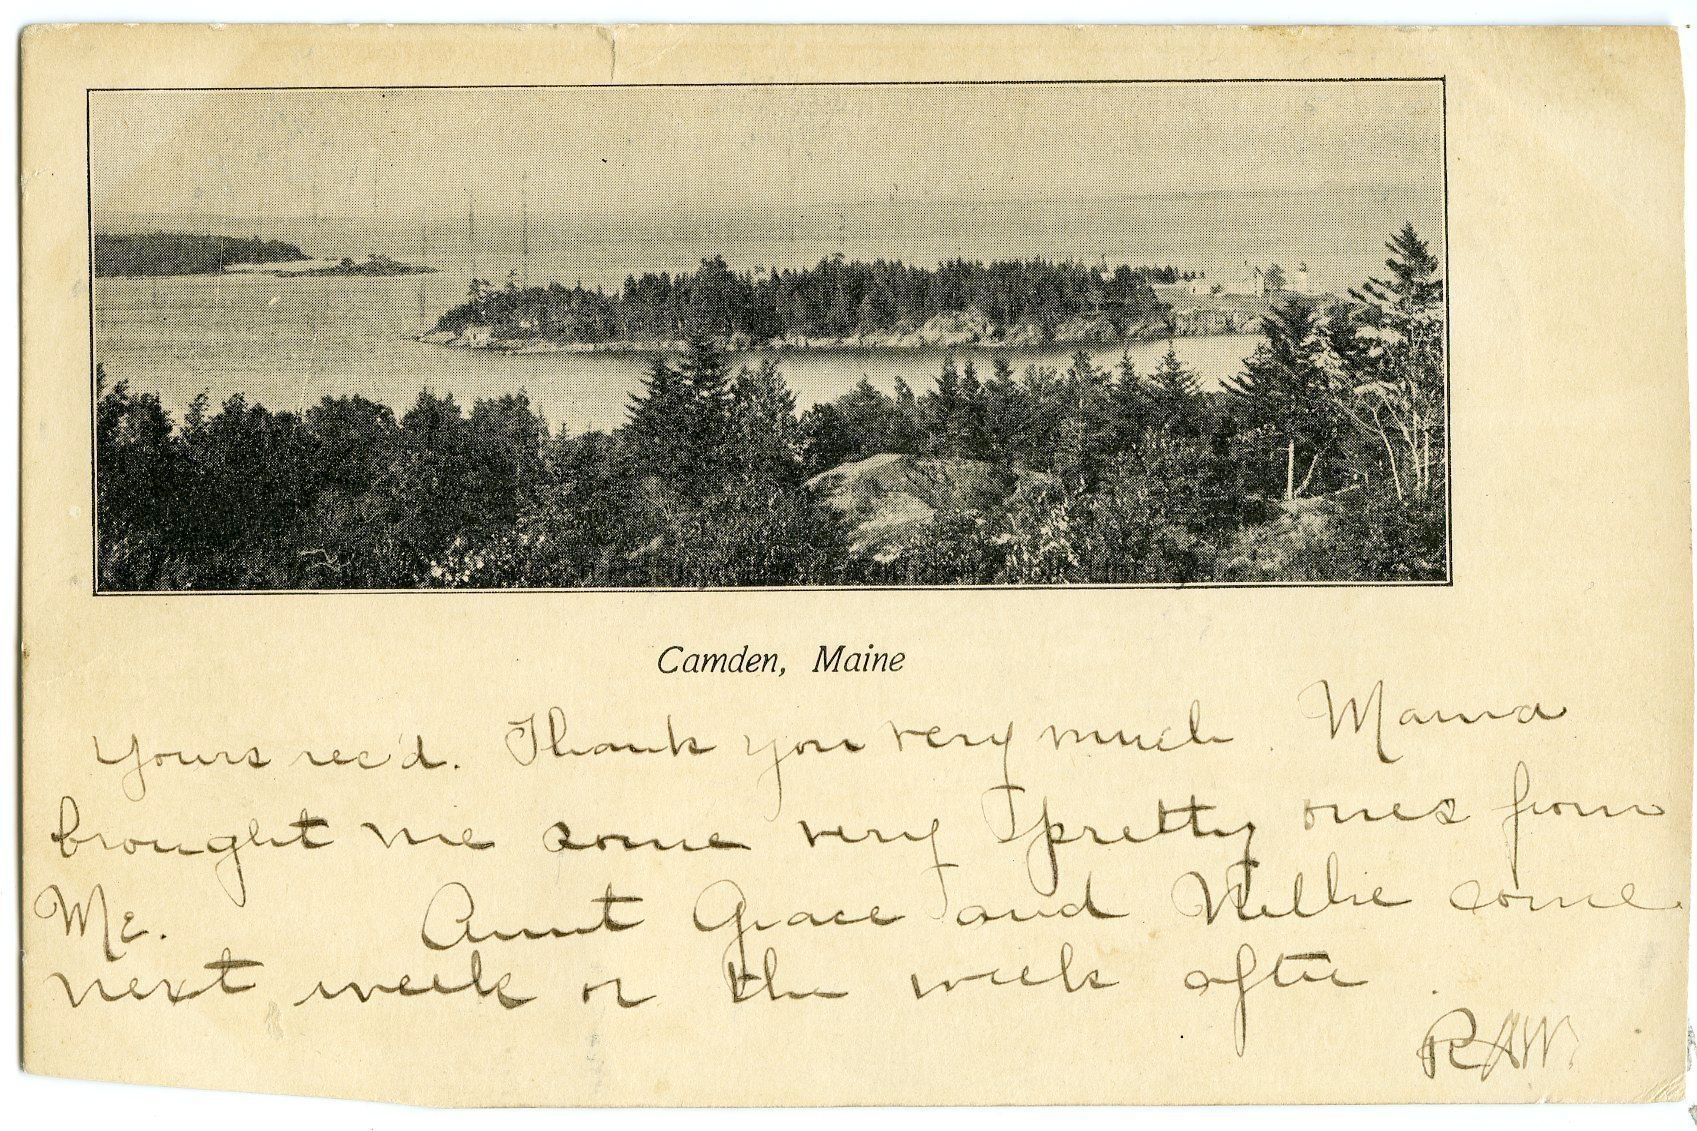 Camden, Maine
Yours rec'd. Thank you very much. Mama
brought me some very pretty ones from
Me. Aunt Grace and Nellie come
next week or the week after.
RAW.